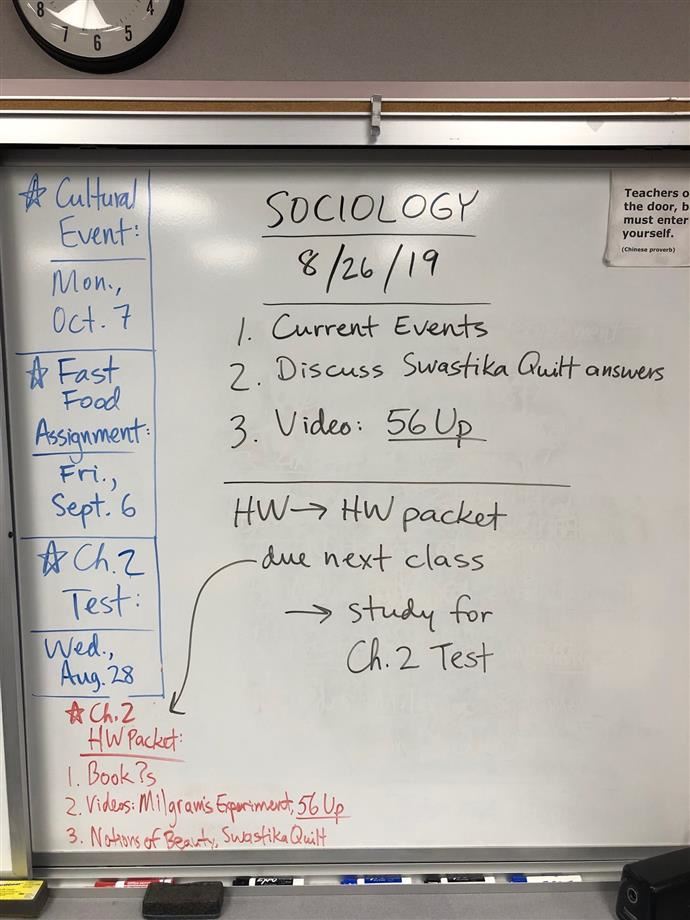 8 7 6 5 4
☆ Cultural
Event:
Mon.,
Oct. 7
☆ Fast
Food
Assignment:
Fri.,
Sept. 6
☆ Ch. 2
Test:
Wed.,
Aug. 28
SOCIOLOGY
8/26/19
1. Current Events
2. Discuss Swastika Quilt answers
3. Video: 56 Up
HW → HW packet
due next class
→ study for
Ch. 2 Test
☆ Ch. 2
HW Packet:
1. Book ?s
2. Videos: Milgram's Experiment, 56 Up
3. Notions of Beauty, Swastika Quilt
Teachers o
the door, b
must enter
yourself.
(Chinese proverb)
EXPO